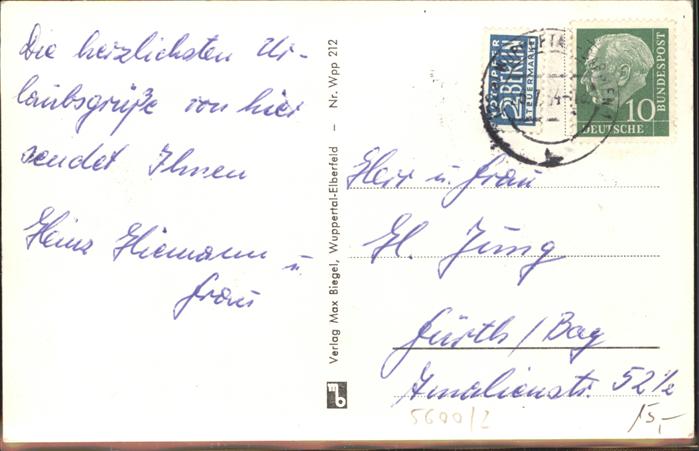 Die herzlichsten Ur-
laubsgrüße von hier
sendet Ihnen
Heinz Hiemann u
Frau
Verlag Max Biegel, Wuppertal-Elberfeld – Nr. Wpp 212
mb
NOTOPFER
2 BERLIN
STEUERMARKE
DEUTSCHE
BUNDESPOST
10
Herr u. Frau
Gl. Jung
Fürth/Bay
Amalienstr. 52½
5600/2
15,-